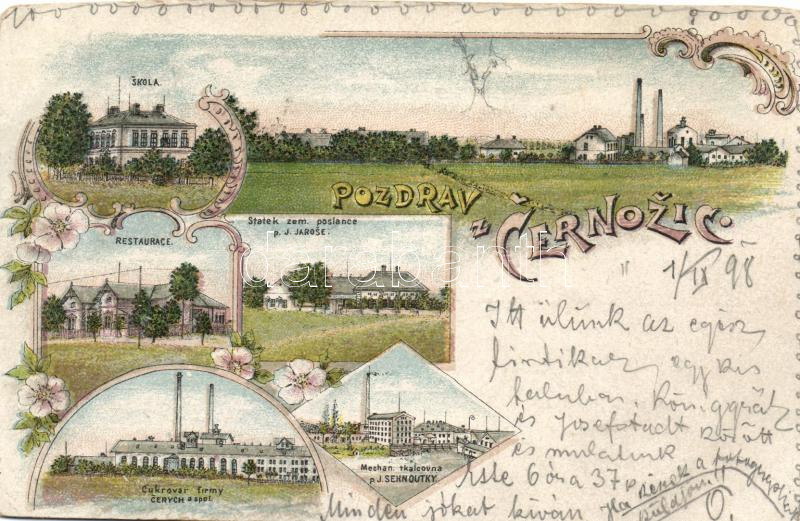 ŠKOLA.
POZDRAV
z ČERNOŽIC.
RESTAURACE.
Statek zem. poslance
p. J. JAROŠE.
Cukrovar firmy
ČERYCH a spol.
Mechan. tkalcovna
p. J. SEHNOUTKY.
darabanth
1/IX 98
Itt ülünk az egész
egy kis
faluban. Königgrätz
és Josefstadt között
és mulatunk
Este 6 óra 37 p.
Minden jókat kíván